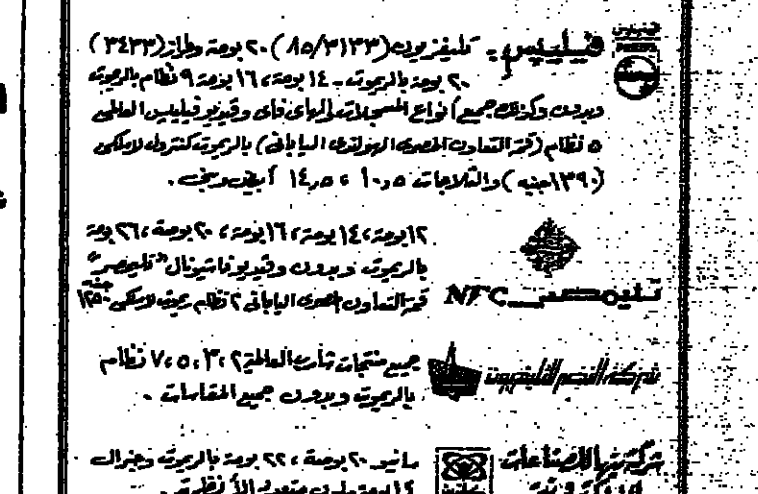 فيليبس - تليفزيون (٨٥/٣١٣٣) ٢٠ بوصة وطراز (٣٤٣٣)
٢٠ بوصة بالريموت - ١٤ بوصة، ١٦ بوصة ٩ نظام بالريموت
وبدون وكذلك جميع أنواع المسجلات والهاى فاى وفيديو فيليبس العالمى
٥ نظام (قمة التعاون المصرى الهولندى اليابانى) بالريموت كنترول لاسلكى
(١٣٩٠ جنيه) والثلاجات ١٠٫٥، ١٤٫٥ أبيض وبنى.
١٢ بوصة، ١٤ بوصة، ١٦ بوصة، ٢٠ بوصة، ٢٦ بوصة
بالريموت وبدون وفيديو ناشيونال "تليمصر"
قمة التعاون المصرى اليابانى ٢ نظام ريموت لاسلكى ١٢٥٠ جنيه
تليمصر NFC
شركة النصر للتليفزيون
جميع منتجات تأرت العالمية ٢، ٣، ٥، ٧ نظام
بالريموت وبدون جميع المقاسات.
شركة بنها للصناعات
سانيو ٢٠ بوصة، ٢٢ بوصة بالريموت وجنرال